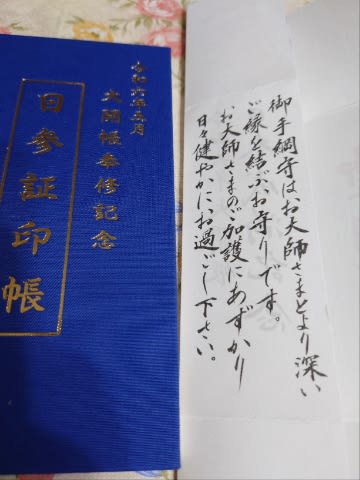 令和六年五月
大開帳奉修記念
日参証印帳
御手綱守はお大師さまとより深い
ご縁を結ぶお守りです。
お大師さまのご加護にあずかり
日々健やかにお過ごし下さい。